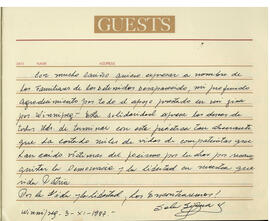 GUESTS
DATE NAME ADDRESS
Con mucho cariño quiero expresar a nombre de
los Familiares de los Detenidos Desaparecidos, un profundo
agradecimiento por todo el apoyo prestado en mi gira
por Winnipeg. Esta solidaridad expresa los deseos de
todos Uds. de terminar con esta práctica tan
que ha costado miles de vidas de compatriotas que
han sido víctimas del fascismo por luchar por
la Democracia y la libertad en nuestra
Patria.
Por la Vida y la libertad, los Encontraremos!
Winnipeg. 3-XI-1987.-